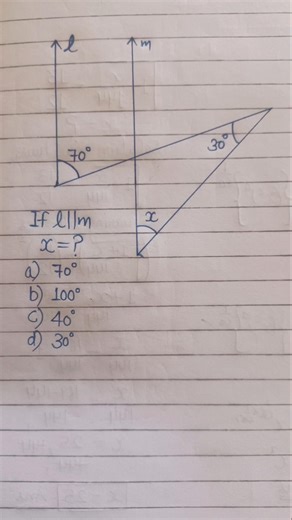 l m
70°
30°
x
If l||m
x=?
a) 70°
b) 100°
c) 40°
d) 30°